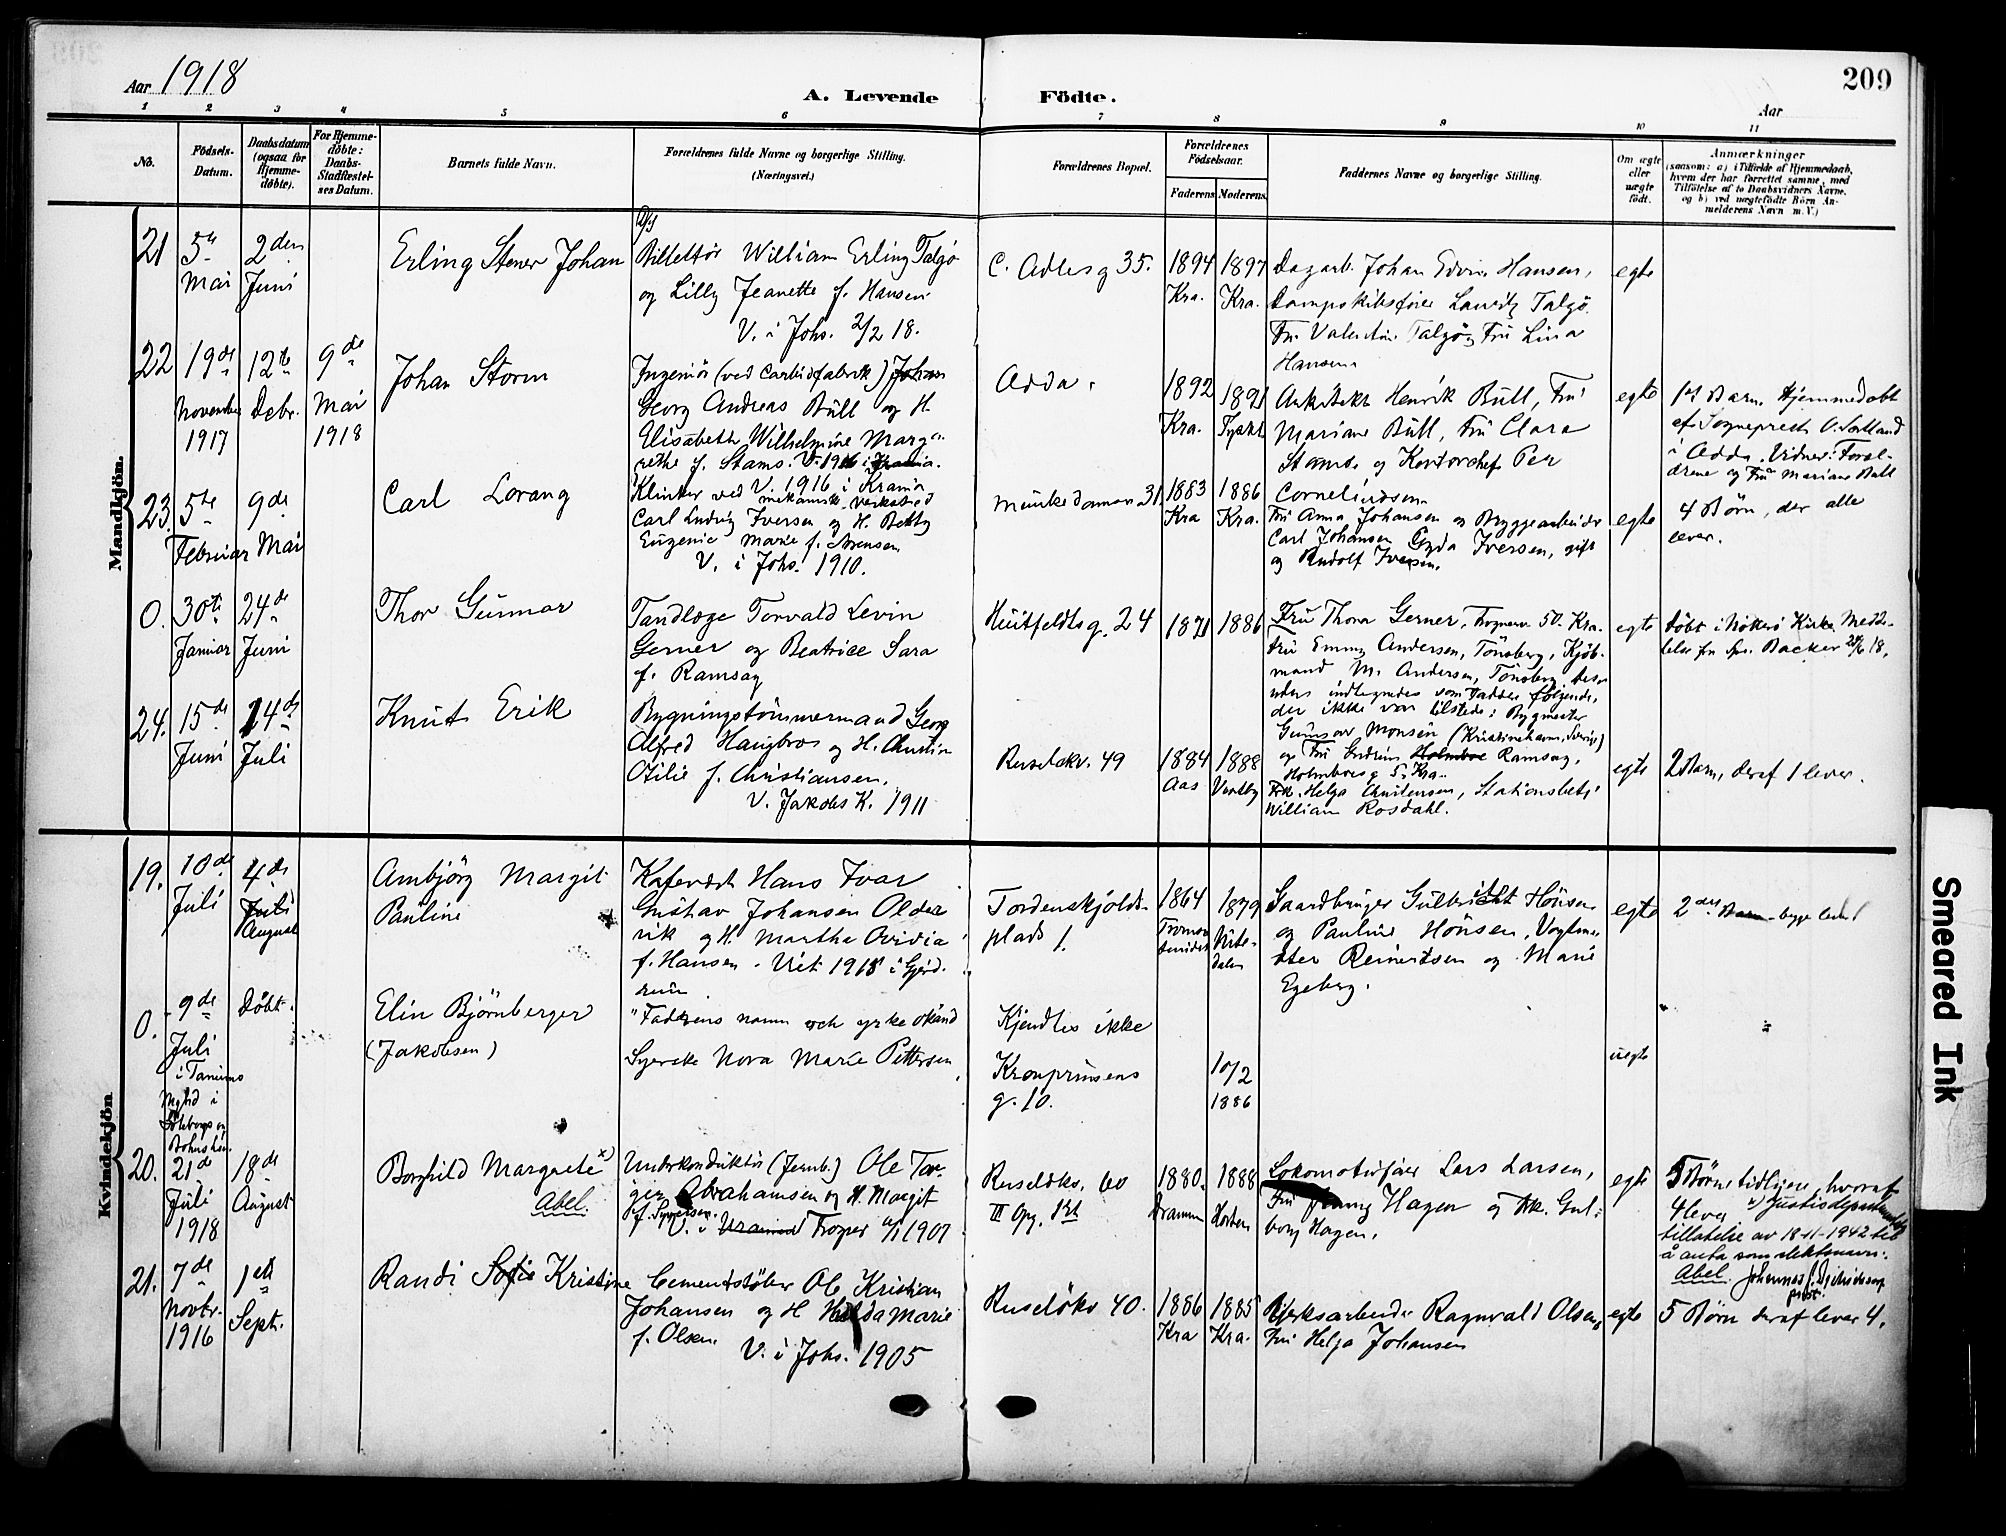 209
Aar 1918
A. Levende Födte.
Aar
1 2 3 4 5 6 7 8 9 10 11
No.
Födsels-
Datum.
Daabsdatum
(ogsaa for
Hjemme-
døbte).
For Hjemme-
døbte:
Daabs-
Stadfæstel-
ses Datum.
Barnets fulde Navn.
Forældrenes fulde Navne og borgerlige Stilling.
(Næringsvei.)
Forældrenes Bopæl.
Forældrenes
Födselsaar.
Faderens Moderens.
Faddernes Navne og borgerlige Stilling.
Om ægte
eller
uægte
født.
Anmærkninger
(saasom: a) i Tilfælde af Hjemmedaab,
hvem der har forrettet samme, med
Tilföielse af to Daabsvidners Navne,
og b) ved uægtefödte Börn An-
melderens Navn m. V.)
Mandkjön.
21
5te
Mai
2den
Juni
Erling Stener Johan
Billettör William Erling Talgö
og Lilly Jeanette f. Hansen
V. i Johs. 2/2 18.
C. Adlersg 35.
1894
Kra.
1897
Kra.
Dagarb. Johan Edvin Hansen,
Dampskibsfører Lauritz Talgö
Fru Valentine Talgö, Fru Lina
Hansen
egte
22
19de
November
1917
12te
Debr.
9de
Mai
1918
Johan Storm
Ingeniör (ved Carbidfabrik) Johan
Georg Andreas Bull og H.
Elisabeth Wilhelmine Marga-
rethe f. Stams. V. 1916 i Krania.
V. 1916 i Krania
Odda.
1892
Kra.
1891
Tyskl.
Arkitekt Henrik Bull, Fru
Mariane Bull, Fru Clara
Stams og Kontorchef Per
Corneliussen
egte
1ste Barn. Hjemmedøbt
af Sogneprest O. Sørtland
i Odda. Vidner: Foræl-
drene og Fru Mariane Bull
23.
5te
Februar
9de
Mai
Carl Lorang
Klinker ved mekanisk verksted
Carl Ludvig Iversen og H. Betty
Eugenie Marie f. Arensen
V. i Johs. 1910.
Munkedamsv 31
1883
Kra
1886
Kra.
Fru Anna Johansen og Bryggearbeider
Carl Johansen Gyda Iversen, gift
og Rudolf Iversen.
egte
4 Børn, der alle
lever.
0.
30te
Januar
24de
Juni
Thor Gunnar
Tandlæge Torvald Levin
Gerner og Beatrice Sara
f. Ramsay
Huitfeldtsg. 24
1871
1886
Fru Thora Gerner, Trognerv 50. Kra.
Fru Emmy Andersen, Tönsberg, Kjöb-
mand M. Andersen, Tönsberg des-
uden indtegnedes som Faddere følgende,
der ikke var tilstede: Bygmester
Gunnar Monsén (Kristinehamn, Sverige)
og Fru Holmboe Ramsay,
Holmboesg 5, Kra.
egte
Döbt i Nökerö Kirke. Medde-
lelse fra Spr. Backer 24/6 18.
24.
15de
Juni
14de
Juli
Knut Erik
Bygningstömmermand Georg
Alfred Haugbros og H. Christine
Otilie f. Christiansen.
V. Jakobs K. 1911
Ruselökv. 49
1884
Aas
1888
Vestby
Frk. Helga Christensen, Stationsbetj.
William Rosdahl.
egte
2 Barn, deraf 1 lever.
Kvindekjön
19.
10de
Juli
4de
Juli
August
Ambjörg Margit
Pauline
Kafevært Hans Ivar
Gustav Johansen Older
vik og H. Martha Ovidia
f. Hansen. Viet 1918 i Gjerd-
rum
Tordenskjolds-
plads 1.
1864
Tromsö
1879
Nite-
dalen
Gaardbruger Gulbrandt Hönsen
og Pauline Hönsen, Vogtmes-
ter Reinertsen og Marie
Egeberg.
egte
2det Barn begge lever
0.
9de
Juli
i Tanums
Døbt.
Elin Björnberger
(Jakobsen)
"Faderens namn och yrke okänd
Syerske Nora Marie Pettersen
Kjendtes ikke
Kronprinsens
g. 10.
10/2
1886
uegte
20.
21de
Juli
1918
18de
August
Borghild Margrete x)
Abel.
Underkonduktör (Jernb.) Ole Tor-
ger Abrahamsen og H. Margit
f. Syversen.
V. i Uranienb Tropes 1907
Ruselökv. 60
III Opg. 1ste
1880.
Drammen
1888
Horten
Lokomotivfører Lars Larsen,
Fru Jenny Hagen og Frk. Gul-
borg Hagen.
egte
5 Børn tidligere, hvoraf
4 lever x) Justisdepartementets
tillatelse av 18-11-1942 til
å anta som slektsnavn:
Abel. Johannes
prest.
21.
7de
Novbr.
1916
1ste
Sept.
Randi Sofie Kristine
Cementstøber Ole Kristian
Johansen og H Hulda Marie
f. Olsen
V. i Johs. 1905
Ruselökv 40.
1886
Kra
1885
Kra.
Verksarbeider Ragnvald Olsen,
Fru Helga Johansen
egte
5 Børn deraf lever 4.
Smeared Ink